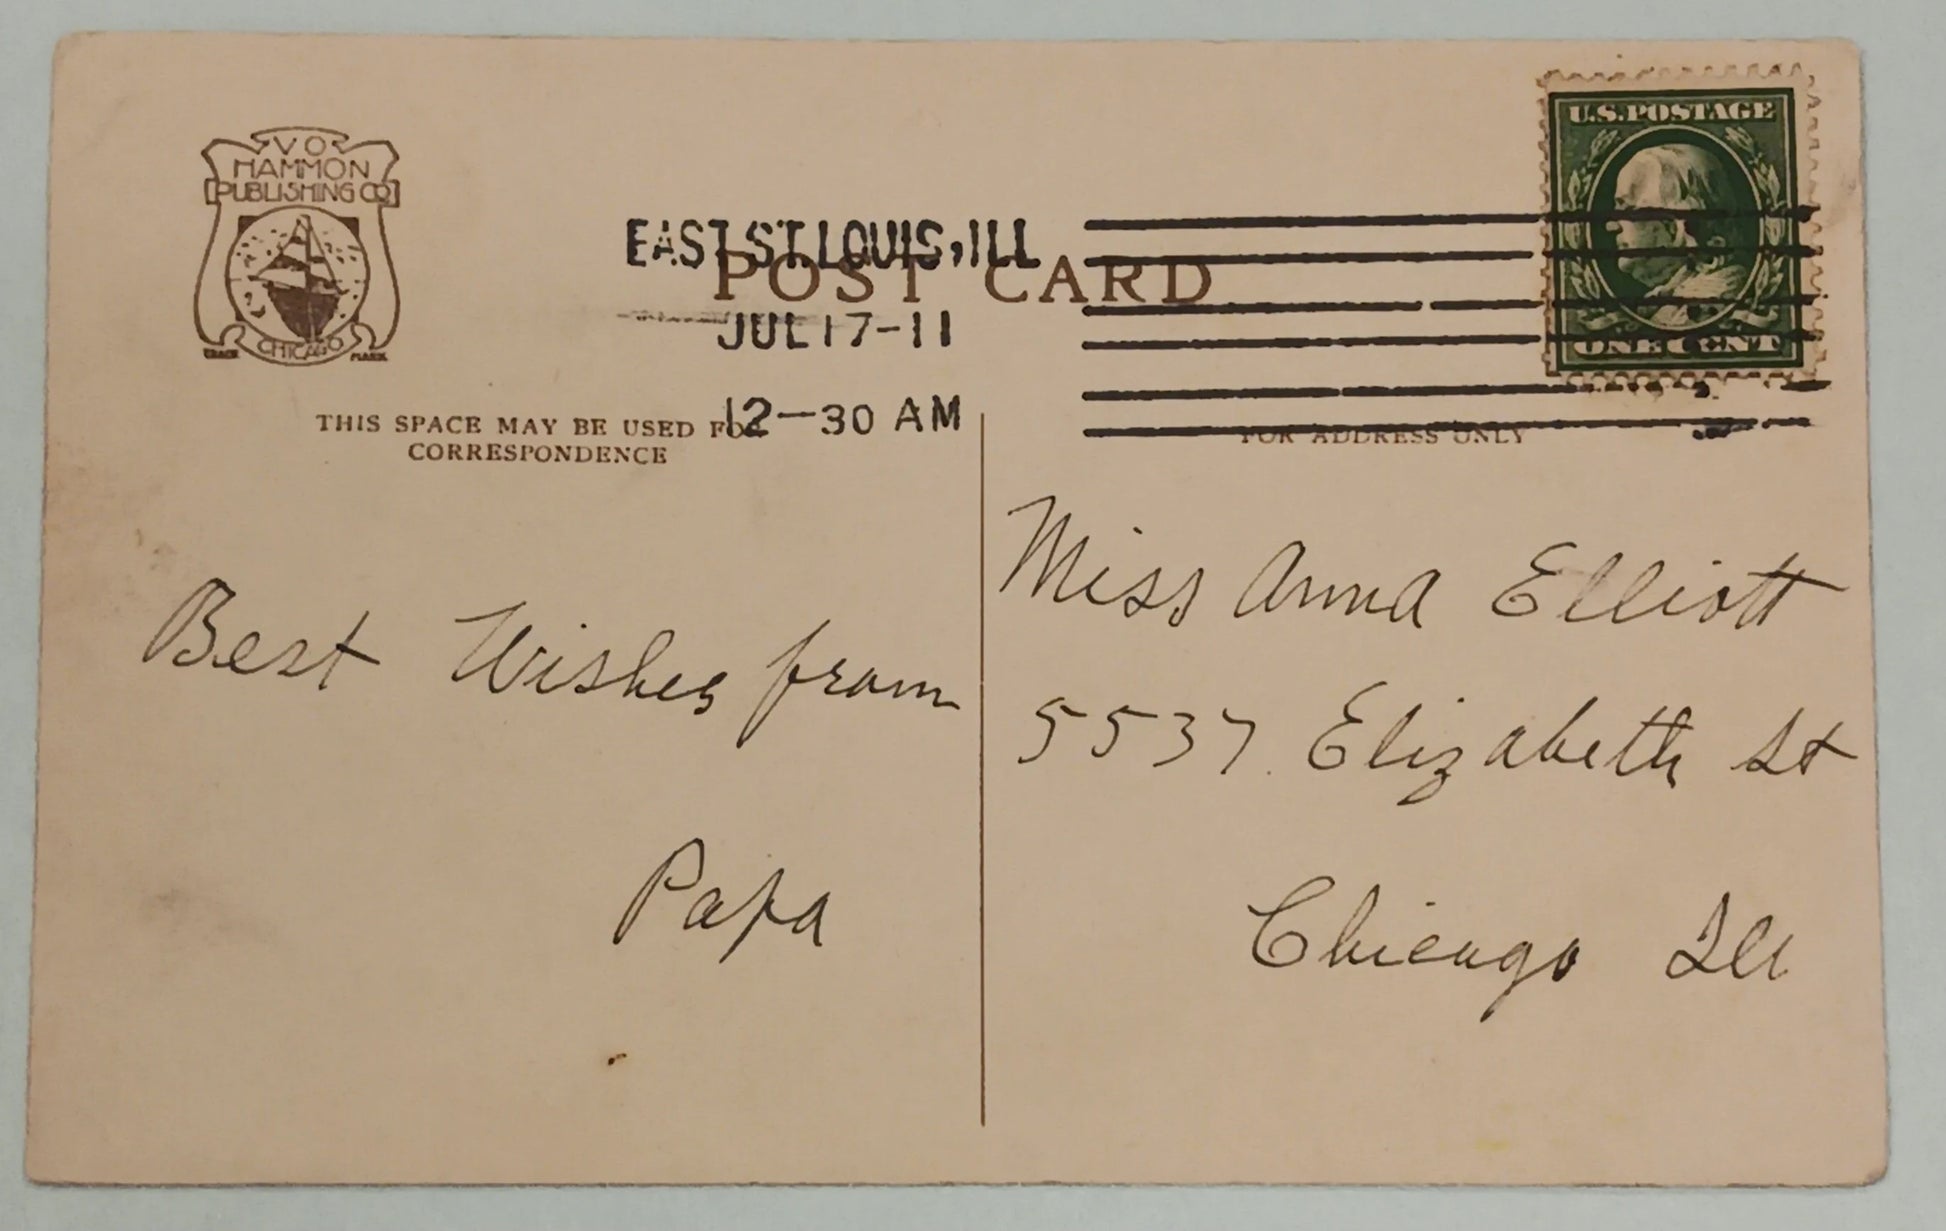 V O
HAMMON
PUBLISHING CO
CHICAGO
TRADE MARK
U.S. POSTAGE
ONE CENT
EAST ST. LOUIS, ILL
POST CARD
JUL 17-11
12-30 AM
THIS SPACE MAY BE USED FOR
CORRESPONDENCE
FOR ADDRESS ONLY
Best Wishes from
Papa
Miss Anna Elliott
5537 Elizabeth St
Chicago Ill